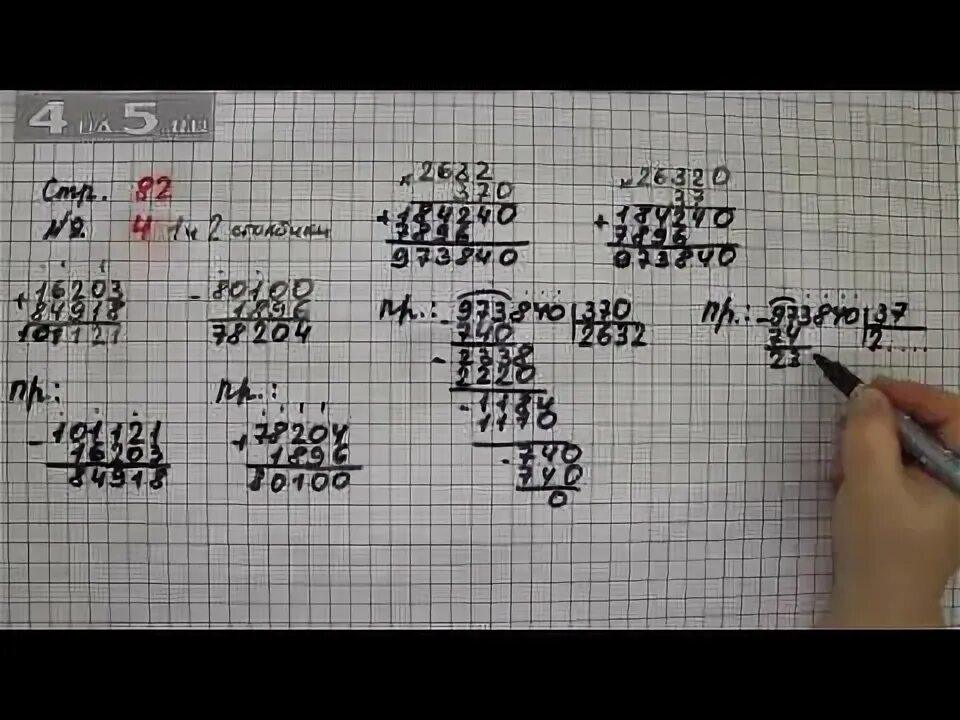 4 на 5.ru
Стр. 82
№. 4 1 и 2 столбики
+16203
84918
101121
-80100
1896
78204
пр.:
-101121
16203
84918
пр.:
+78204
1896
80100
×2632
370
+184240
7896
973840
×26320
37
+184240
7896
973840
пр.: -973840 370
740 2632
-2338
2220
-1184
1170
-740
740
0
пр.: -973840 37
74 2....
23